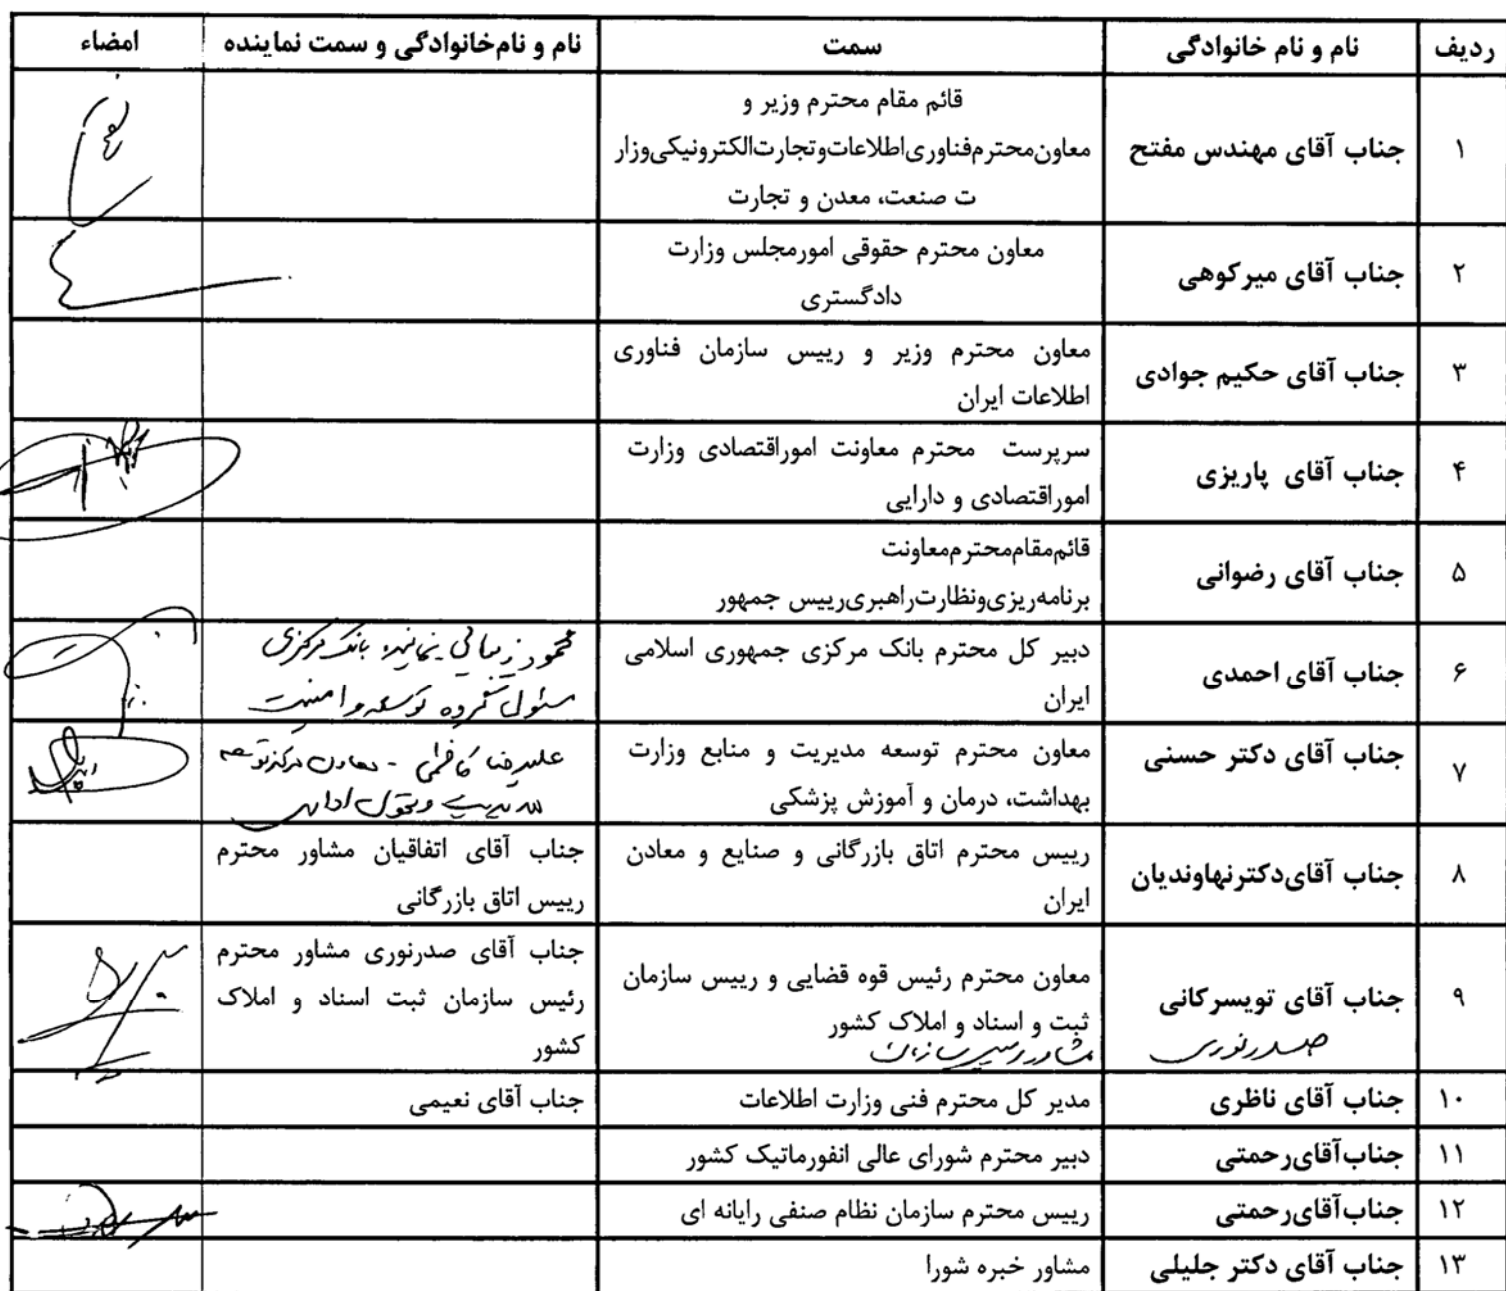 ردیف نام و نام خانوادگی سمت نام و نام‌خانوادگی و سمت نماینده امضاء
۱ جناب آقای مهندس مفتح قائم مقام محترم وزیر و
معاون‌محترم‌فناوری‌اطلاعات‌وتجارت‌الکترونیکی‌وزار
ت صنعت، معدن و تجارت
۲ جناب آقای میرکوهی معاون محترم حقوقی امورمجلس وزارت
دادگستری
۳ جناب آقای حکیم جوادی معاون محترم وزیر و رییس سازمان فناوری
اطلاعات ایران
۴ جناب آقای پاریزی سرپرست محترم معاونت اموراقتصادی وزارت
اموراقتصادی و دارایی
۵ جناب آقای رضوانی قائم‌مقام‌محترم‌معاونت
برنامه‌ریزی‌ونظارت‌راهبری‌رییس جمهور
۶ جناب آقای احمدی دبیر کل محترم بانک مرکزی جمهوری اسلامی
ایران
محمود زیبائی نماینده بانک مرکزی
مسئول گروه توسعه و امنیت
۷ جناب آقای دکتر حسنی معاون محترم توسعه مدیریت و منابع وزارت
بهداشت، درمان و آموزش پزشکی
علیرضا کاظمی - معاون مرکز توسعه
مدیریت و تحول اداری
۸ جناب آقای‌دکترنهاوندیان رییس محترم اتاق بازرگانی و صنایع و معادن
ایران
جناب آقای اتفاقیان مشاور محترم
رییس اتاق بازرگانی
۹ جناب آقای تویسرکانی
صدرنوری
معاون محترم رئیس قوه قضایی و رییس سازمان
ثبت و اسناد و املاک کشور
مشاور رییس سازمان
جناب آقای صدرنوری مشاور محترم
رئیس سازمان ثبت اسناد و املاک
کشور
۱۰ جناب آقای ناظری مدیر کل محترم فنی وزارت اطلاعات جناب آقای نعیمی
۱۱ جناب‌آقای‌رحمتی دبیر محترم شورای عالی انفورماتیک کشور
۱۲ جناب‌آقای‌رحمتی رییس محترم سازمان نظام صنفی رایانه ای
۱۳ جناب آقای دکتر جلیلی مشاور خبره شورا